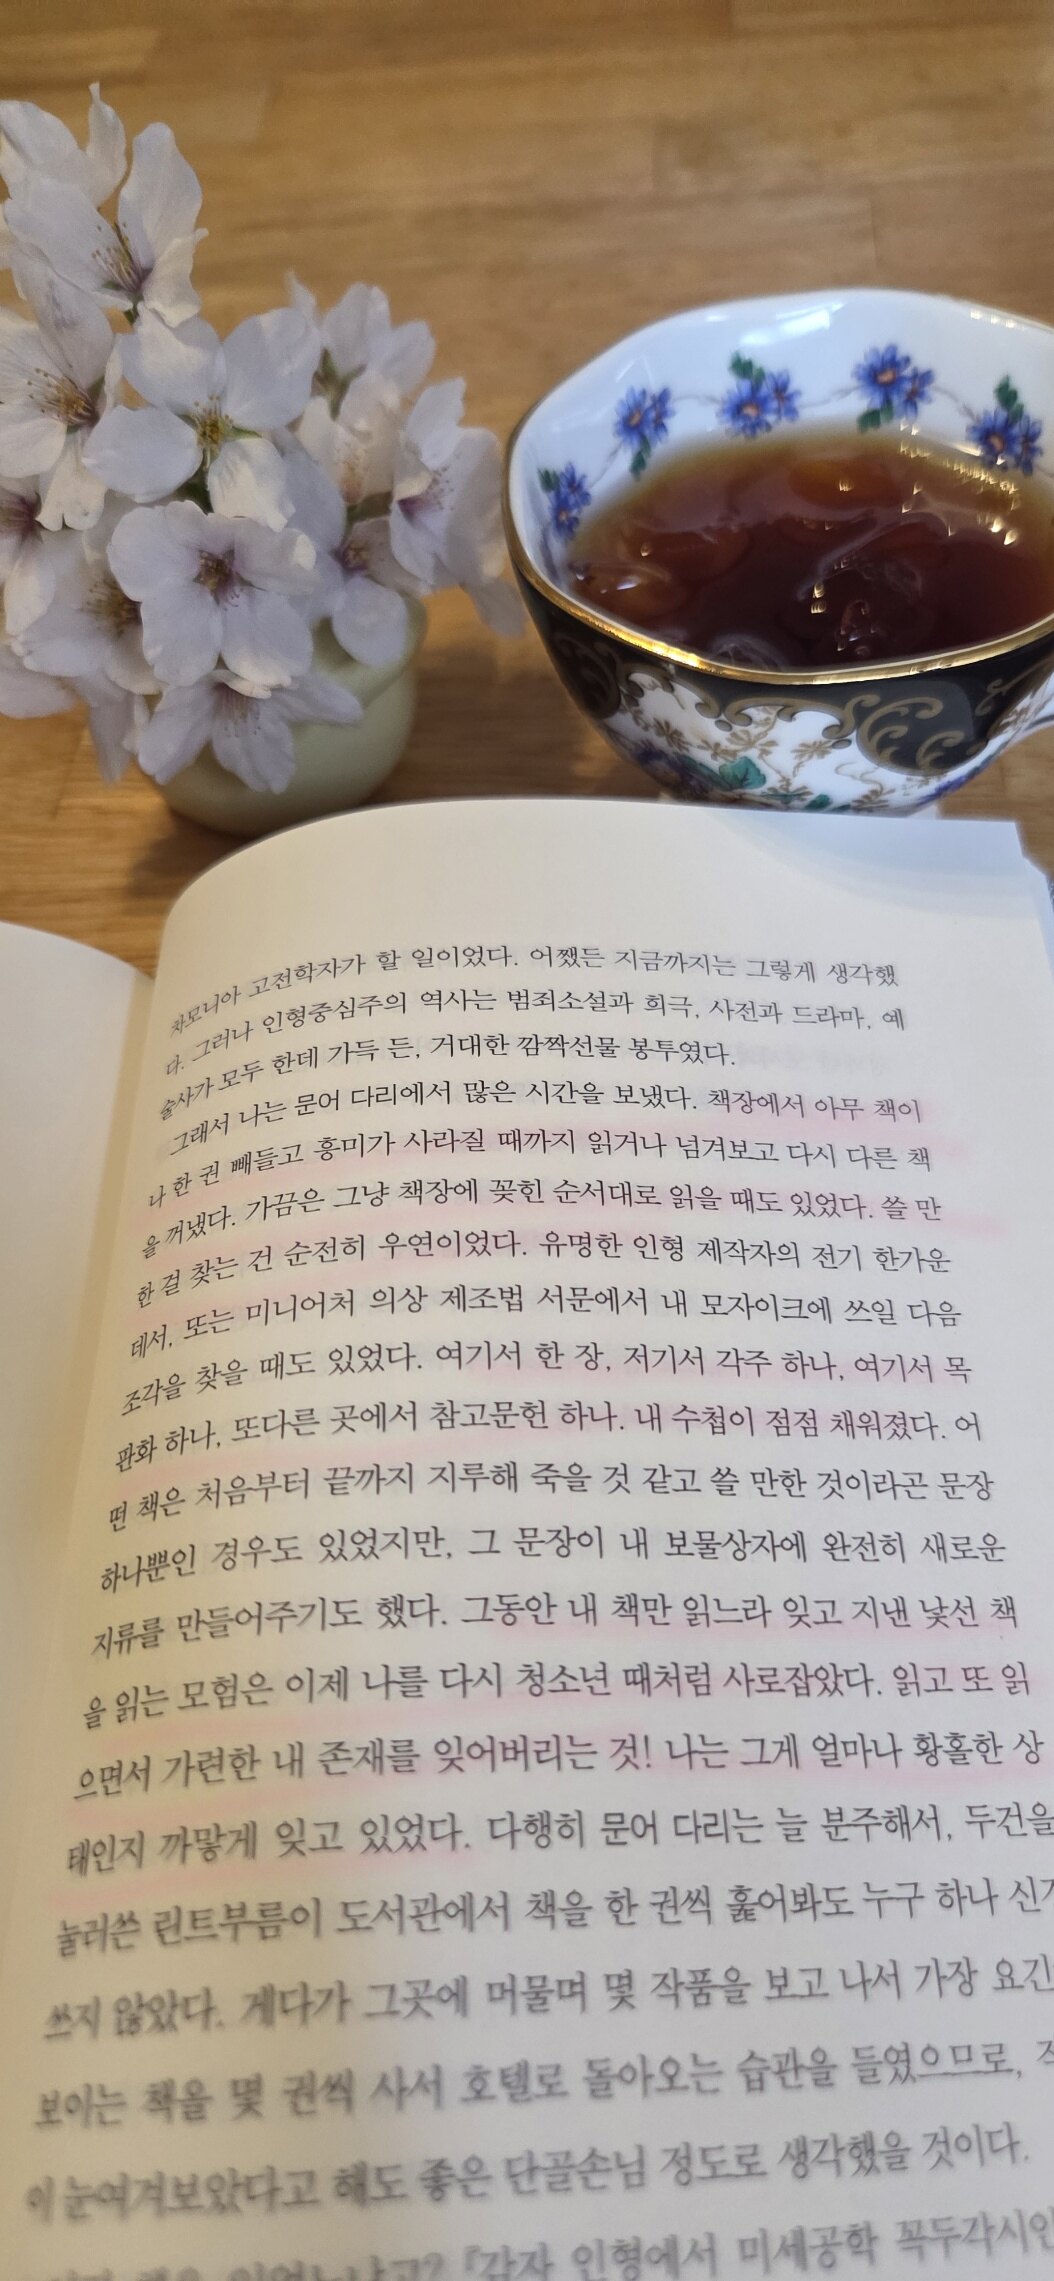 차모니아 고전학자가 할 일이었다. 어쨌든 지금까지는 그렇게 생각했
다. 그러나 인형중심주의 역사는 범죄소설과 희극, 사전과 드라마, 예
술사가 모두 한데 가득 든, 거대한 깜짝선물 봉투였다.
그래서 나는 문어 다리에서 많은 시간을 보냈다. 책장에서 아무 책이
나 한 권 빼들고 흥미가 사라질 때까지 읽거나 넘겨보고 다시 다른 책
을 꺼냈다. 가끔은 그냥 책장에 꽂힌 순서대로 읽을 때도 있었다. 쓸 만
한 걸 찾는 건 순전히 우연이었다. 유명한 인형 제작자의 전기 한가운
데서, 또는 미니어처 의상 제조법 서문에서 내 모자이크에 쓰일 다음
조각을 찾을 때도 있었다. 여기서 한 장, 저기서 각주 하나, 여기서 목
판화 하나, 또다른 곳에서 참고문헌 하나. 내 수첩이 점점 채워졌다. 어
떤 책은 처음부터 끝까지 지루해 죽을 것 같고 쓸 만한 것이라곤 문장
하나뿐인 경우도 있었지만, 그 문장이 내 보물상자에 완전히 새로운
지류를 만들어주기도 했다. 그동안 내 책만 읽느라 잊고 지낸 낯선 책
을 읽는 모험은 이제 나를 다시 청소년 때처럼 사로잡았다. 읽고 또 읽
으면서 가련한 내 존재를 잊어버리는 것! 나는 그게 얼마나 황홀한 상
태인지 까맣게 잊고 있었다. 다행히 문어 다리는 늘 분주해서, 두건을
눌러쓴 린트부름이 도서관에서 책을 한 권씩 훑어봐도 누구 하나 신
쓰지 않았다. 게다가 그곳에 머물며 몇 작품을 보고 나서 가장 요긴
보이는 책을 몇 권씩 사서 호텔로 돌아오는 습관을 들였으므로,
이 눈여겨보았다고 해도 좋은 단골손님 정도로 생각했을 것이다.
『감자 인형에서 미세공학 꼭두각시인